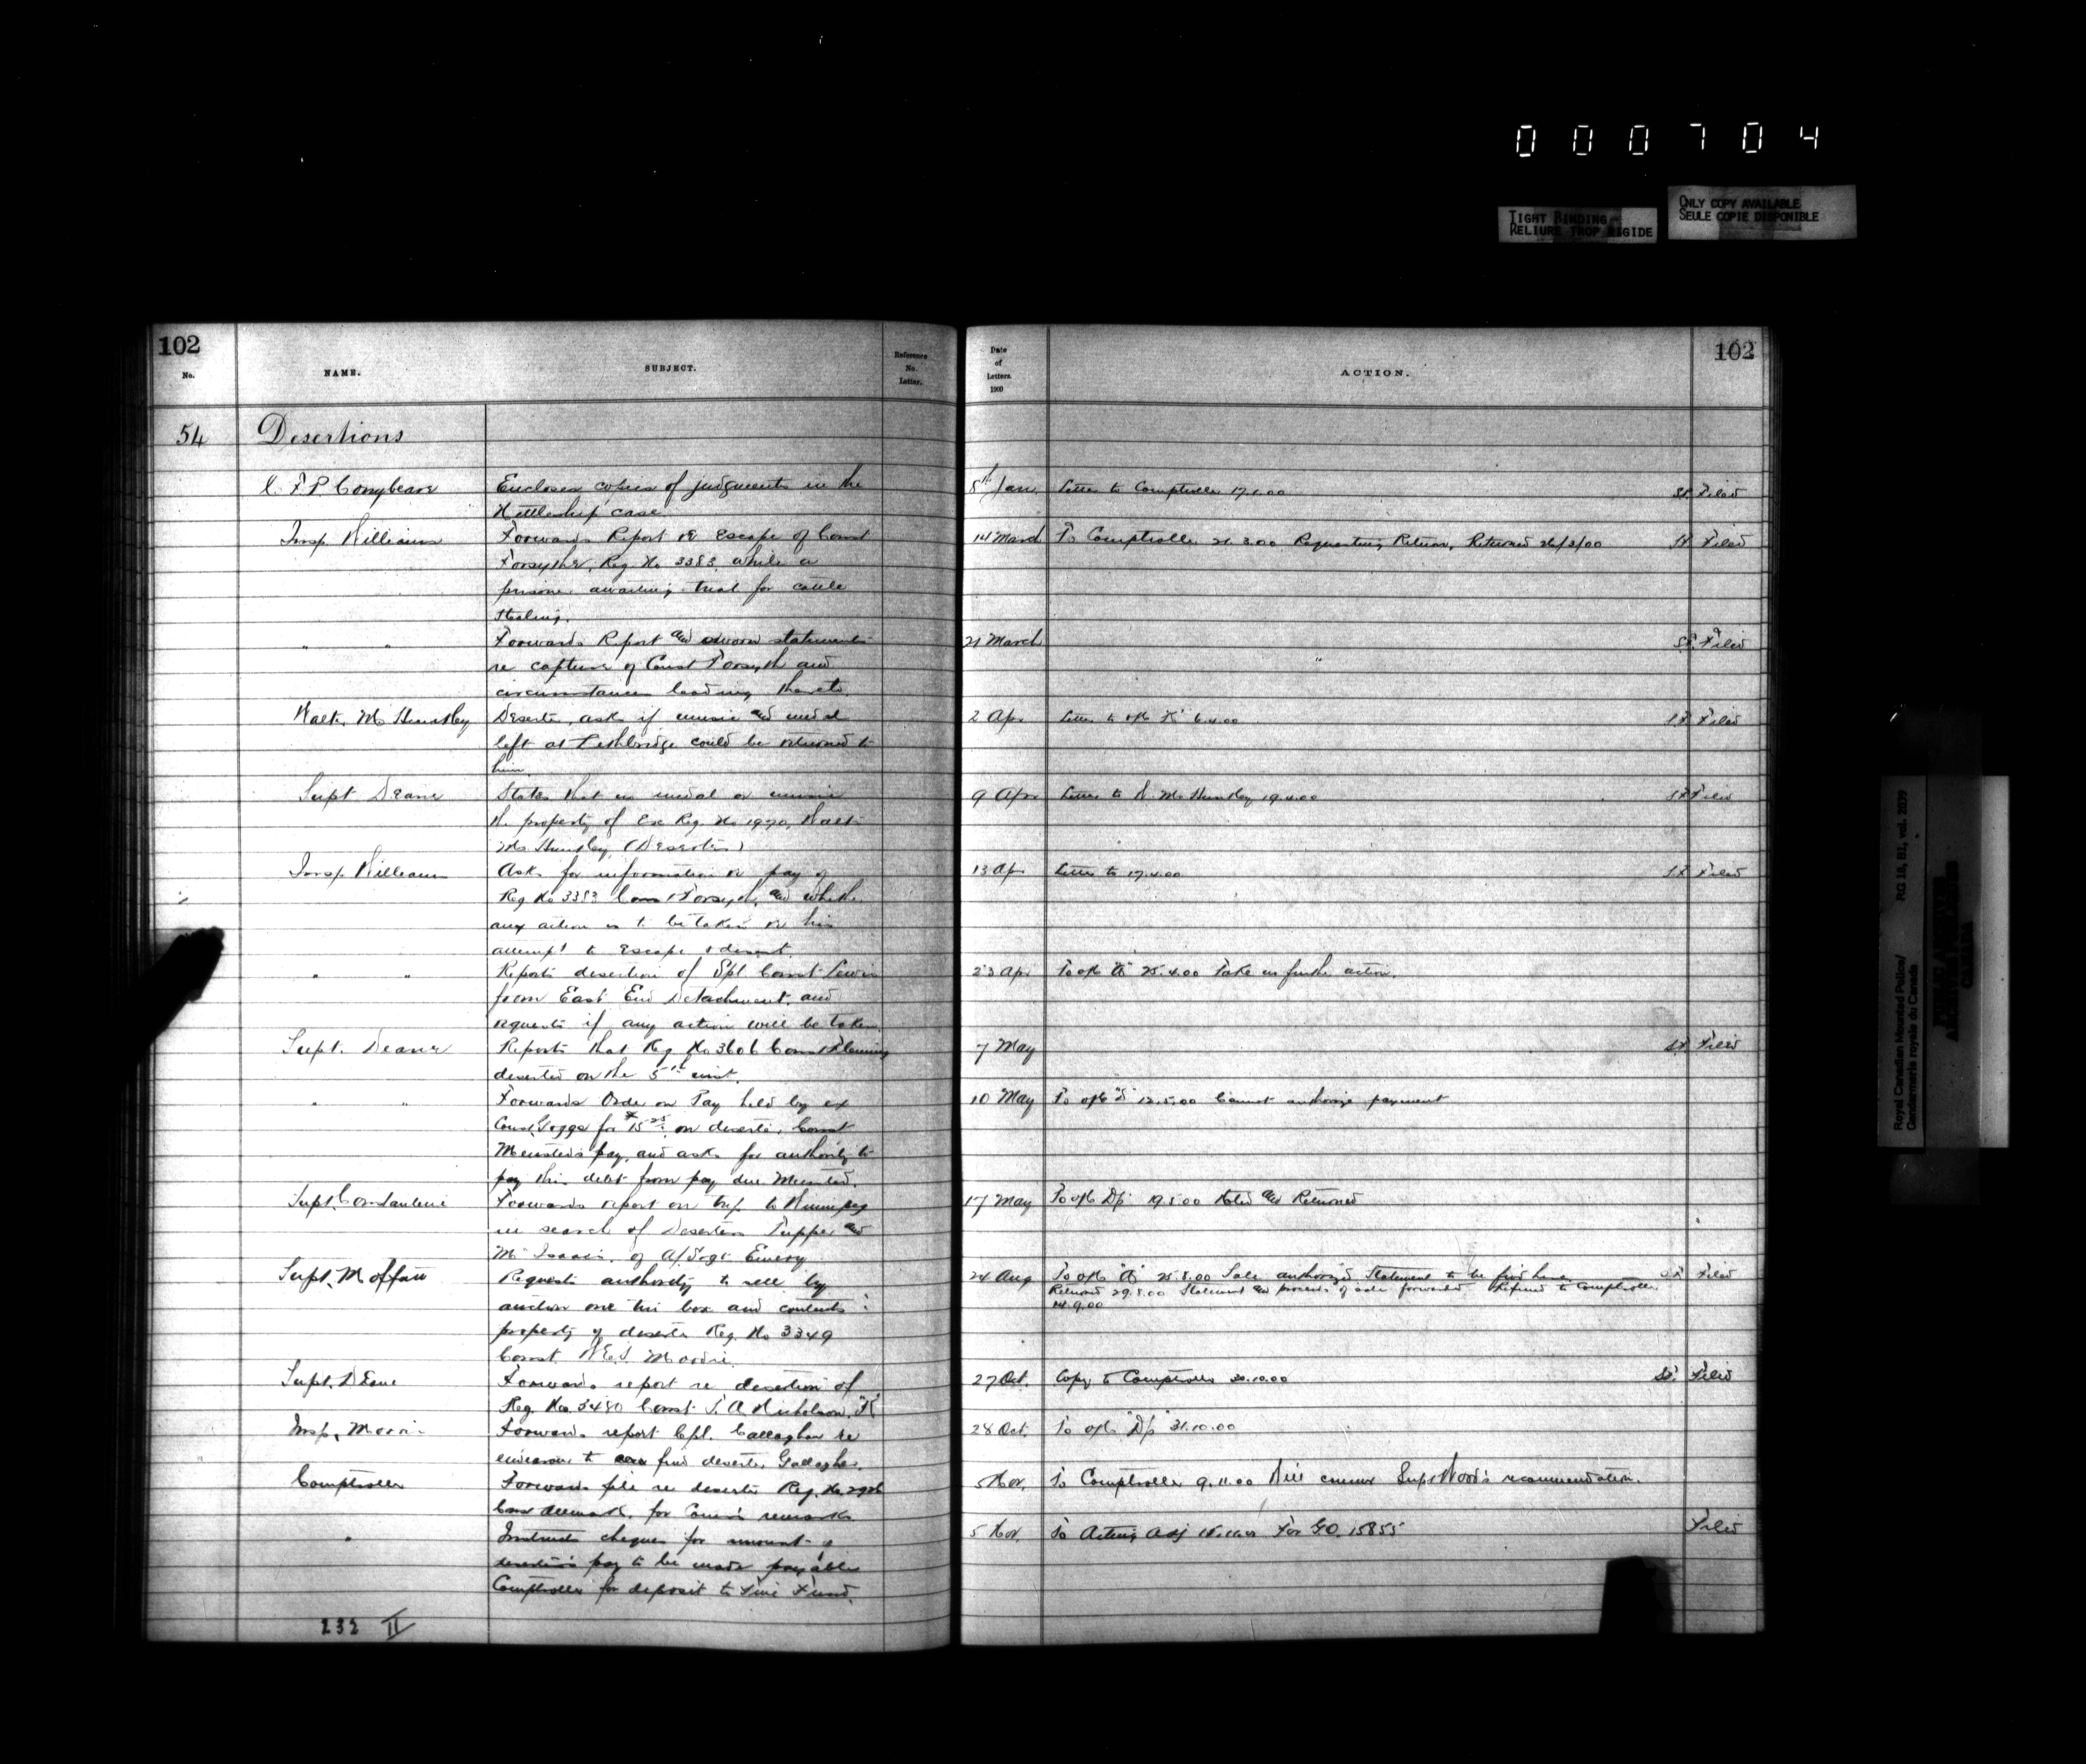 000704
TIGHT BINDING
RELIURE TROP RIGIDE
ONLY COPY AVAILABLE
SEULE COPIE DISPONIBLE
102
No.
NAME.
SUBJECT.
Reference
No.
Letter.
Date
of
Letters
1900
ACTION.
102
54 Desertions
C. F. P. Conybeare Encloses copies of judgments in the 8th Jan. Letter to Comptroller 17.1.00 Filed
Nettleship case.
Insp. Williams Forwards Report re Escape of Const 14 March To Comptroller 21.3.00 Requesting Return, Returned 26/3/00 Filed
Forsythe, Reg. No 3383, while a
prisoner awaiting trial for cattle
stealing.
" " Forwards Report and sworn statements 21 March " Filed
re capture of Const Forsyth and
circumstances leading thereto.
Walter McHuntley Deserter, asks if music and medal 2 Apr Letter to o/c "K" 6.4.00 Filed
left at Lethbridge could be returned to
him.
Supt Deane States that no medal or music 9 Apr Letter to W. McHuntley 19.4.00 Filed
property of Ex Reg. No 1970, Walt.
McHuntley (Deserter)
Insp. Williams Asks for information re pay of 13 Apr Letter to 17.4.00 Filed
Reg No 3383 Const Forsyth, and whether
any action is to be taken re his
attempt to Escape & desert.
" " Reports desertion of Spl. Const Lewis 23 Apr To o/c "A" 25.4.00 Take no further action.
from East End Detachment, and
requests if any action will be taken.
Supt. Deane Reports that Reg. No 3606 Const Fleming 7 May Filed
deserted on the 5th inst.
" " Forwards Order on Pay held by ex 10 May To o/c 12.5.00 Cannot authorize payment
Const. for $15 on deserter, Const
pay, and asks for authority to
pay this debt from pay due
Supt. Constantine Forwards report on trip to Winnipeg 17 May To o/c Dp. 19.5.00 Noted and Returned
in search of Deserters Tupper and
McIsaac, of A/Sergt Emery
Supt. Moffatt Requests authority to sell by 24 Aug To o/c "A" 25.8.00 Sale authorized Statement to be fwd here Filed
auction one tin box and contents Returned 29.8.00 Statement and proceeds of sale forwarded Referred to Comptroller
property of deserter Reg. No 3349 14.9.00
Const. Moodie.
Supt. Deane Forwards report re desertion of 27 Oct. Copy to Comptroller 30.10.00 Filed
Reg. No. 3480 Const. J. A. Nicholson, "K"
Insp. Morris Forwards report Cpl. Callaghan re 28 Oct. To o/c "Dp" 31.10.00
endeavour to find deserter Gallagher.
Comptroller Forwards file re deserter Reg. No. 2926 5 Nov. To Comptroller 9.11.00 Will concur Supt Wood's recommendation.
Const for Com'r's remarks
" Instructs cheques for amount of 5 Nov. To Acting Adj For G.O. 15855 Filed
deserter's pay to be made payable
Comptroller for deposit to Fine Fund.
232 II
Royal Canadian Mounted Police/
Gendarmerie royale du Canada
RG 18, B1, vol. 2039
PUBLIC ARCHIVES
ARCHIVES PUBLIQUES
CANADA